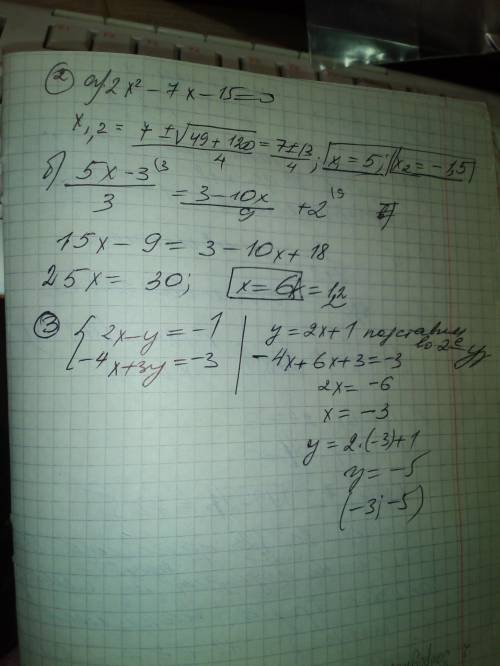 ② а) 2x² − 7x − 15 = 0
x₁,₂ = (7 ± √(49 + 120))/4 = (7 ± 13)/4; x₁ = 5; x₂ = −1,5
б) (5x − 3)/3 ⁽³ = (3 − 10x)/9 + 2 ⁽⁹
15x − 9 = 3 − 10x + 18
25x = 30; x = 6 x = 1,2
③ { 2x − y = −1
−4x + 3y = −3
y = 2x + 1 подставим во 2е ур
−4x + 6x + 3 = −3
2x = −6
x = −3
y = 2·(−3) + 1
y = −5
(−3; −5)